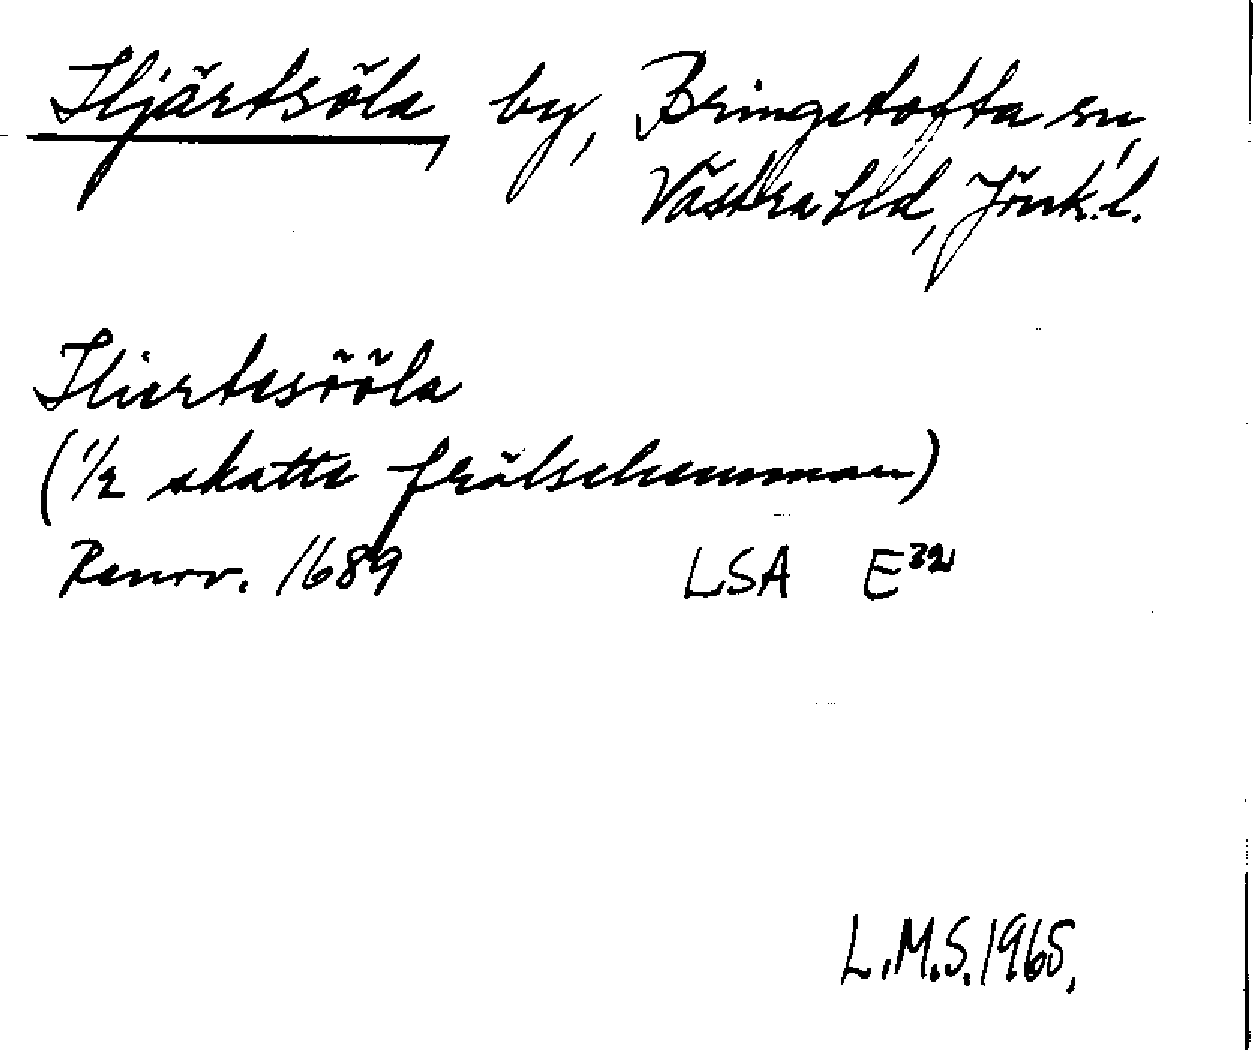 Hjärtsöla, by, Bringetofta sn,
Västra hd, Jönk.l.
Hiertesööla
(1/2 skatte frälsehemman)
Renov. 1689 LSA E32
L.M.S. 1965.